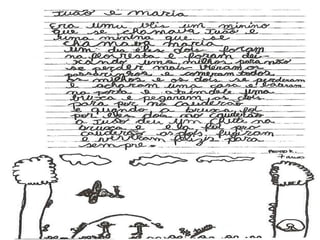 João e maria
Era uma vlis um minino
que se chomava João e
numa minina que se
chamava maria
um dia eles dois foram
na floresta e foram dei
xando uns milhos pela não
se perder mais vieram os
pasarinhos e comeram todos
os milhos e os dois se perderam
e acharam uma casa e bateram
na porta e atendeu uma
bruxa e pegaram os dois
para por no caudeirão
e quando a bruxa foi
por eles dois no caudeirão
a João deu um chute na
bruxa e ela foi pro
caudeirão os dois fugiram
e viveram felizs para
sempre.
7 anos